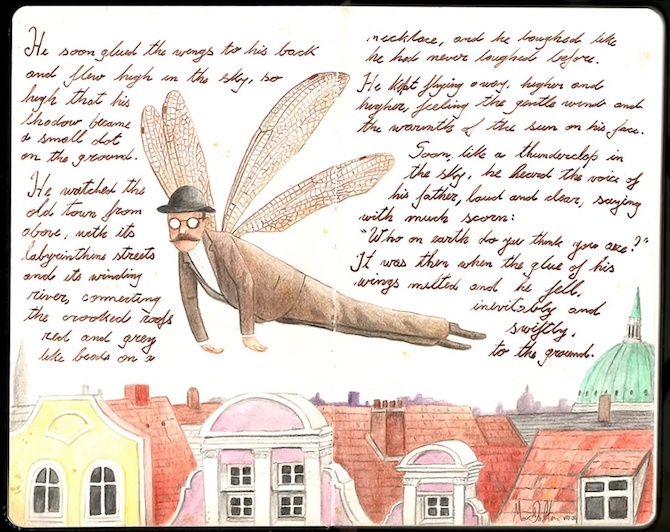 He soon glued the wings to his back
and flew high in the sky, so
high that his
shadow became
a small dot
on the ground.
He watched the
old town from
above, with its
labyrinthine streets
and its winding
river, connecting
the crooked roofs
red and grey
like beads on a
necklace, and he laughed like
he had never laughed before.
He kept flying away, higher and
higher, feeling the gentle wind and
the warmth of the sun on his face.
Soon, like a thunderclap in
the sky, he heard the voice of
his father, loud and clear, saying
with much scorn:
"Who on earth do you think you are?"
It was then when the glue of his
wings melted and he fell,
inevitably and
swiftly,
to the ground.